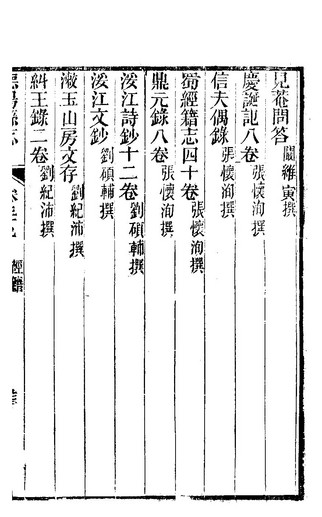 見菴問答 闞維寅撰
慶誕記八卷 張懷洵撰
信夫偶錄 張懷洵撰
蜀經籍志四十卷 張懷洵撰
鼎元錄八卷 張懷洵撰
涭江詩鈔十二卷 劉碩輔撰
涭江文鈔 劉碩輔撰
漱玉山房文存 劉紀沛撰
糾王錄二卷 劉紀沛撰
經籍